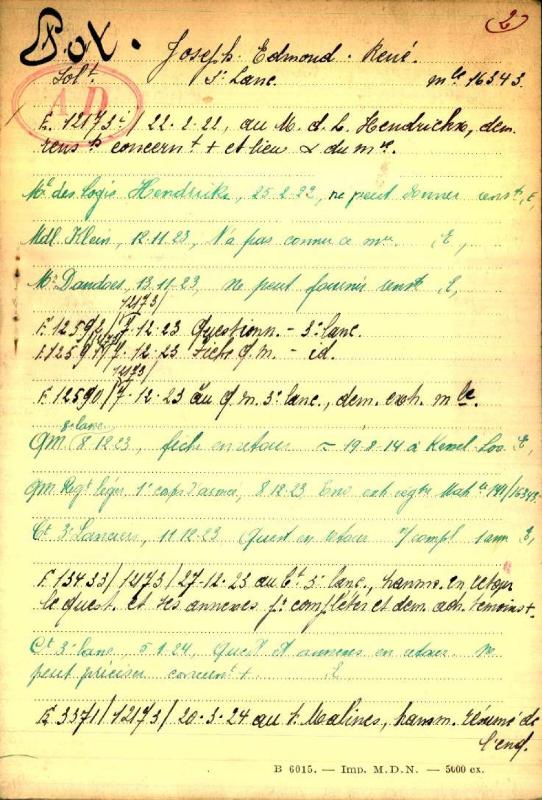 2
Fox. Joseph. Edmond. René.
Solt. 3e Lanc. mle 16343.
A D
E. 12173 / 22.2.22, au M. d. L. Hendrickx, dem.
rens ts concernt + et lieu du mre.
Ml des logis Hendrickx, 25-2-22, ne peut donner rens, E,
Mdl. Klein, 12.11.23, N'a pas connu ce mre. E,
Mr Dandois, 13.11.23, ne peut fournir renst. E,
E. 12592 / 12173 / 7.12.23 Questionn. - 3e lanc.
E. 12591 / 12173 / 7.12.23 Fiche q.m. - id.
E. 12590 / 12173 / 7.12.23 au q.m. 3e lanc., dem. extr. mle.
QM 3e lanc 8.12.23, fiche en retour 19-8-14 à E,
QM Regt léger 1e corps d'armée, 8.12.23. Env. ext. règtre Mat le 16343.
Ct 3e Lanciers, 11.12.23 Quest en retour compl 1 ann E,
E. 13433 / 12173 / 27-12-23 au Ct 3e lanc., transm. en retour
le quest. et ses annexes pr compléter et dem. témoins +.
Ct 3e lanc 5.1.24, Quest et annexes en retour. Ne
peut préciser concernt + E
E. 3371 / 12173 / 20-3-24 au Malines, transm. résumé de
l'enq.
B 6015. — Imp. M.D.N. — 5000 ex.